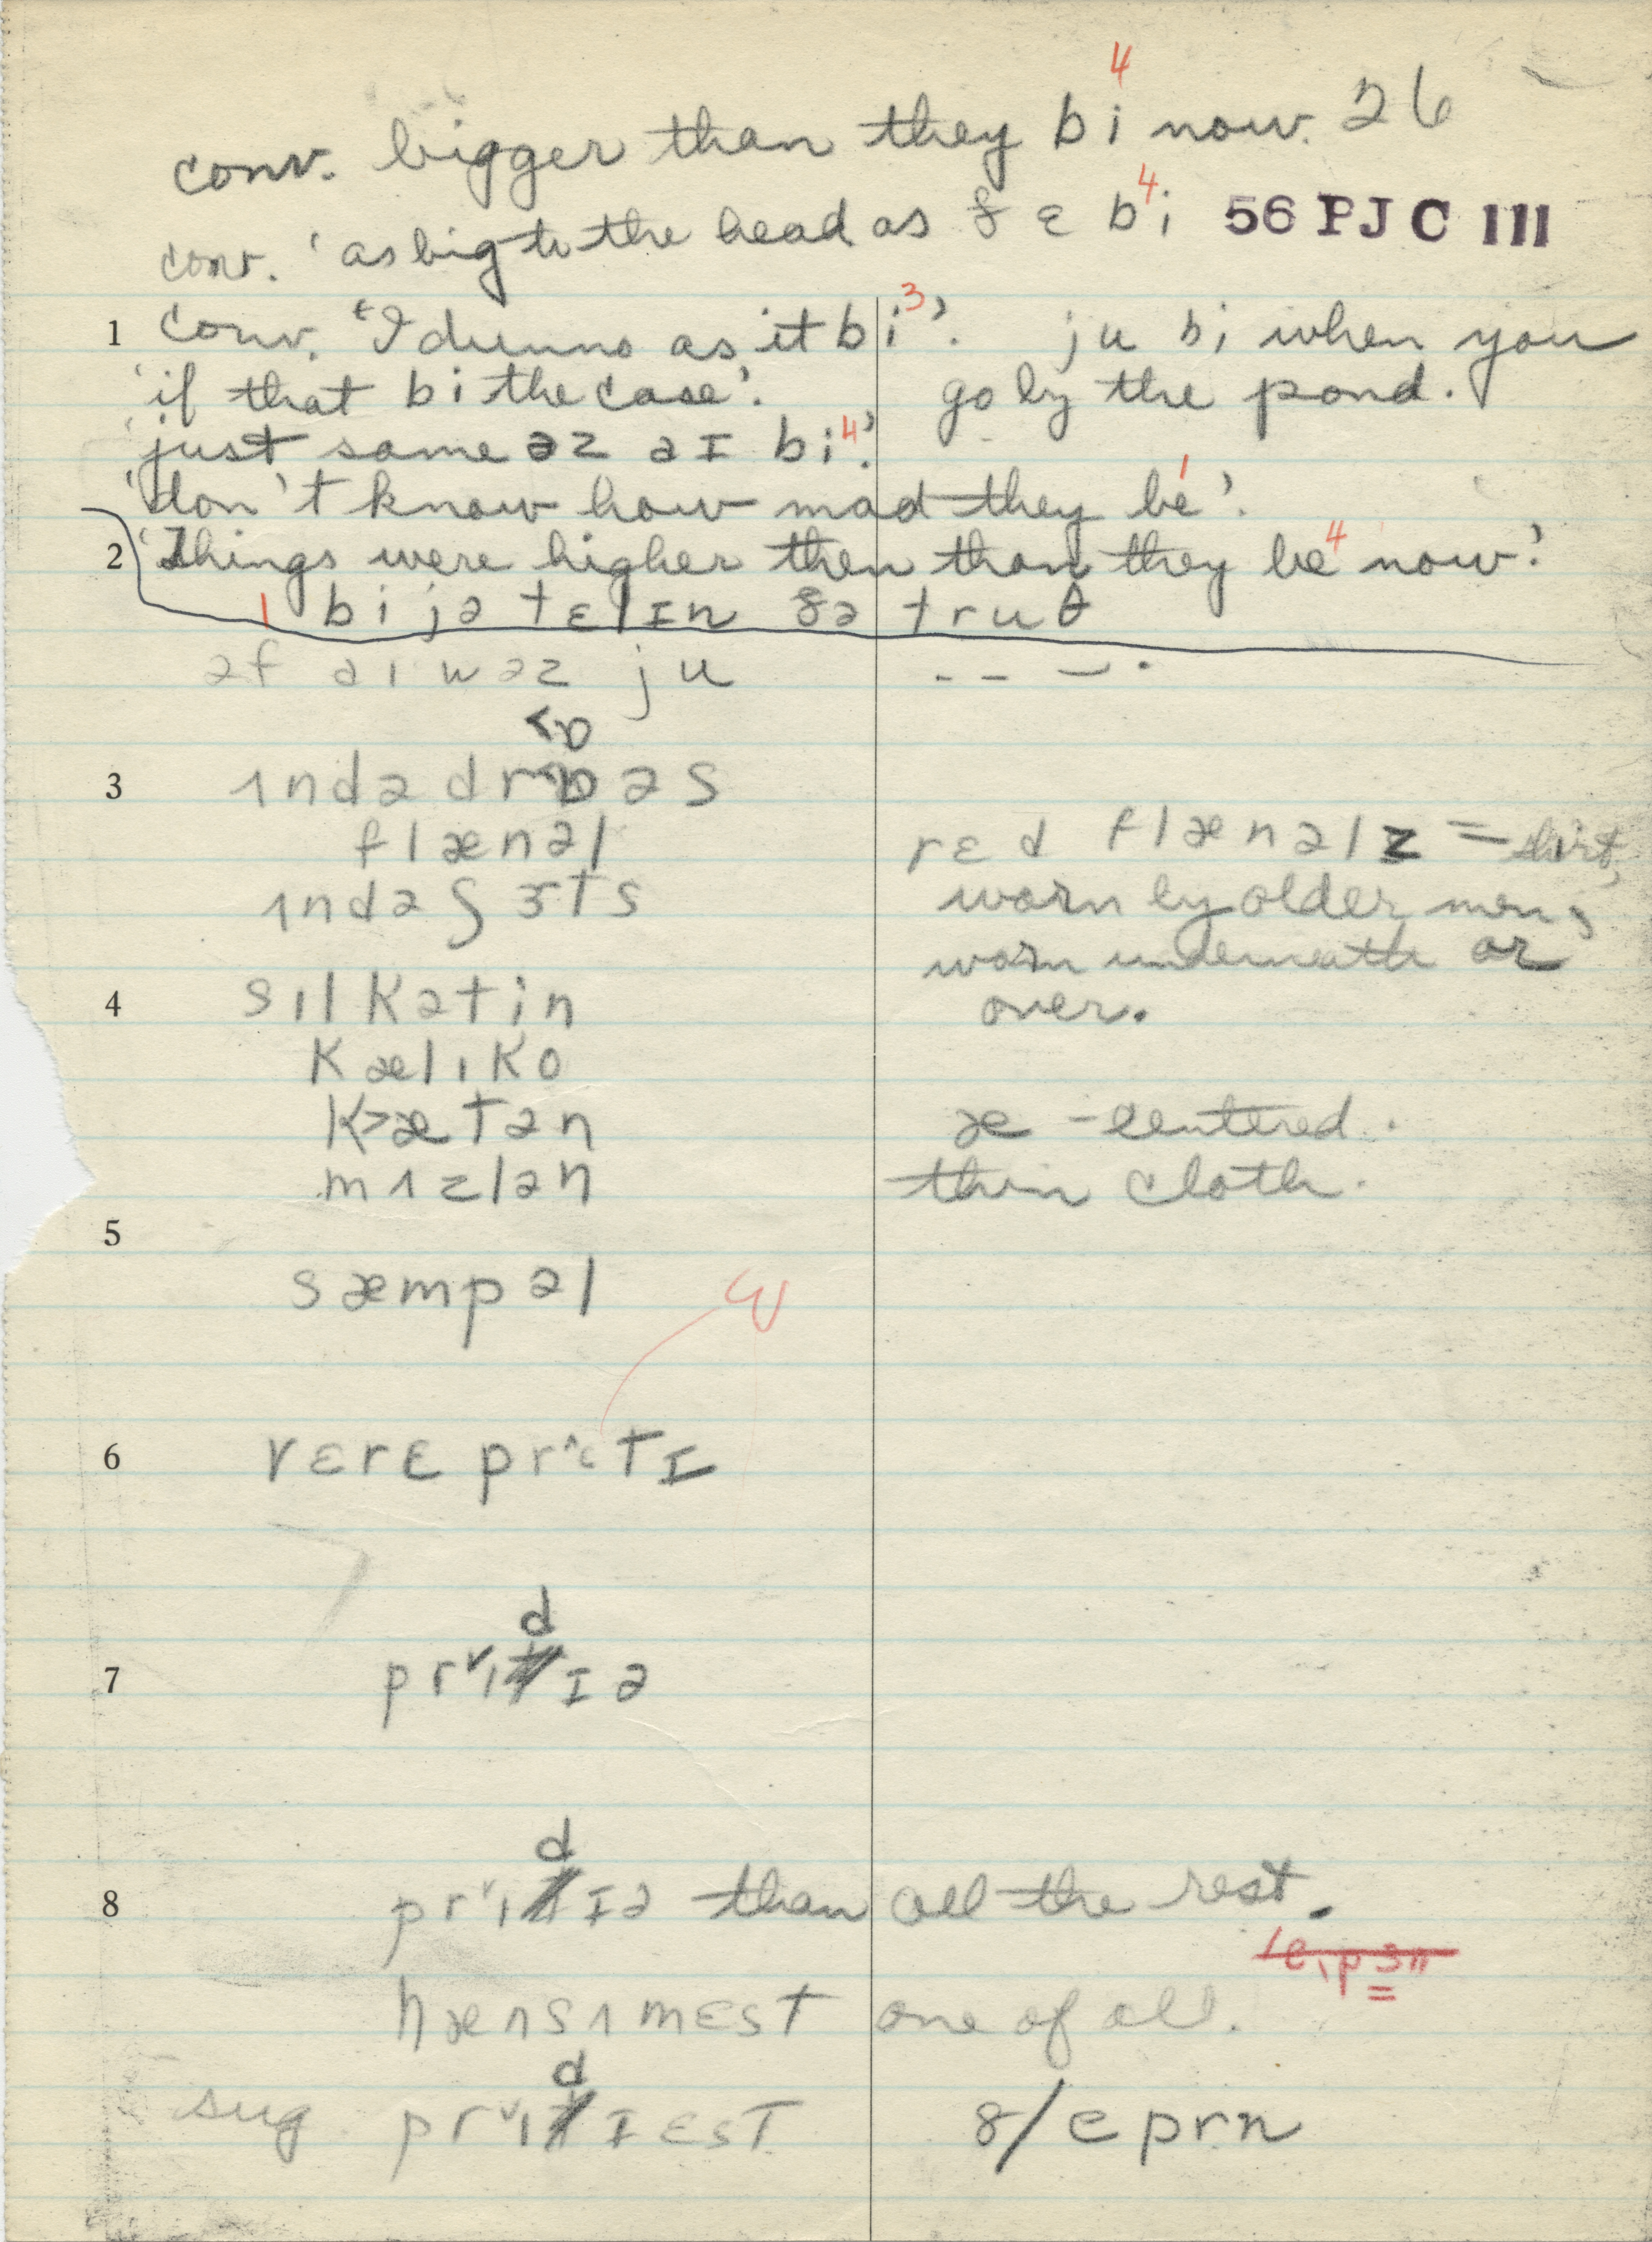 conv. bigger than they bi⁴ now. 26
conv. 'as big to the head as ðɛ b⁴i 56 PJC III
1 conv. 'I dunno as it bi³'. ju bi when you
'if that bi the case'. go by the pond.
'just same əz aɪ bi⁴'.
'don't know how mad they be¹'.
2 'Things were higher then than they be⁴ now'.
1 bi jə tɛlɪn ðə truθ
əf aɪ wəz ju - - - .
<ɒ
3 ɪndə drɒəs
flænəl rɛd flænəlz = shirt,
ɪndəʃɜts worn by older men,
worn underneath or
4 sɪlkətin over.
kælɪko
k>ætən æ - centered.
mɪzlən thin cloth.
5
sæmpəl ɛ
6 vɛrɛ pr^ɛtɪ
d
7 prˇɪtɪə
d
8 prˇɪtɪə than all the rest.
hænsɪmɛst one of all.
d
sug. prˇɪtɪɛst 8/e prn